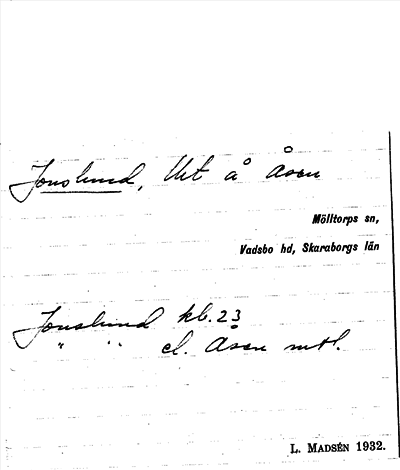 Jonslund, Ut å Åsen
Mölltorps sn,
Vadsbo hd, Skaraborgs län
Jonslund kb.23
" " el. Åsen mtl.
L. MADSÉN 1932.